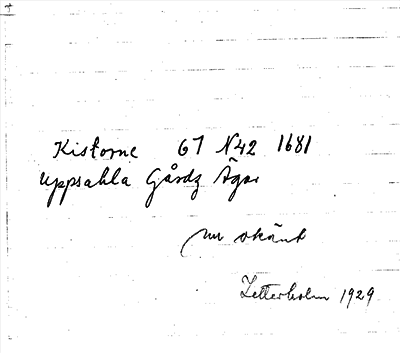 Kistorne 67 N42 1681
Uppsahla Gårdz Ägor
nu okänt
Zetterholm 1929